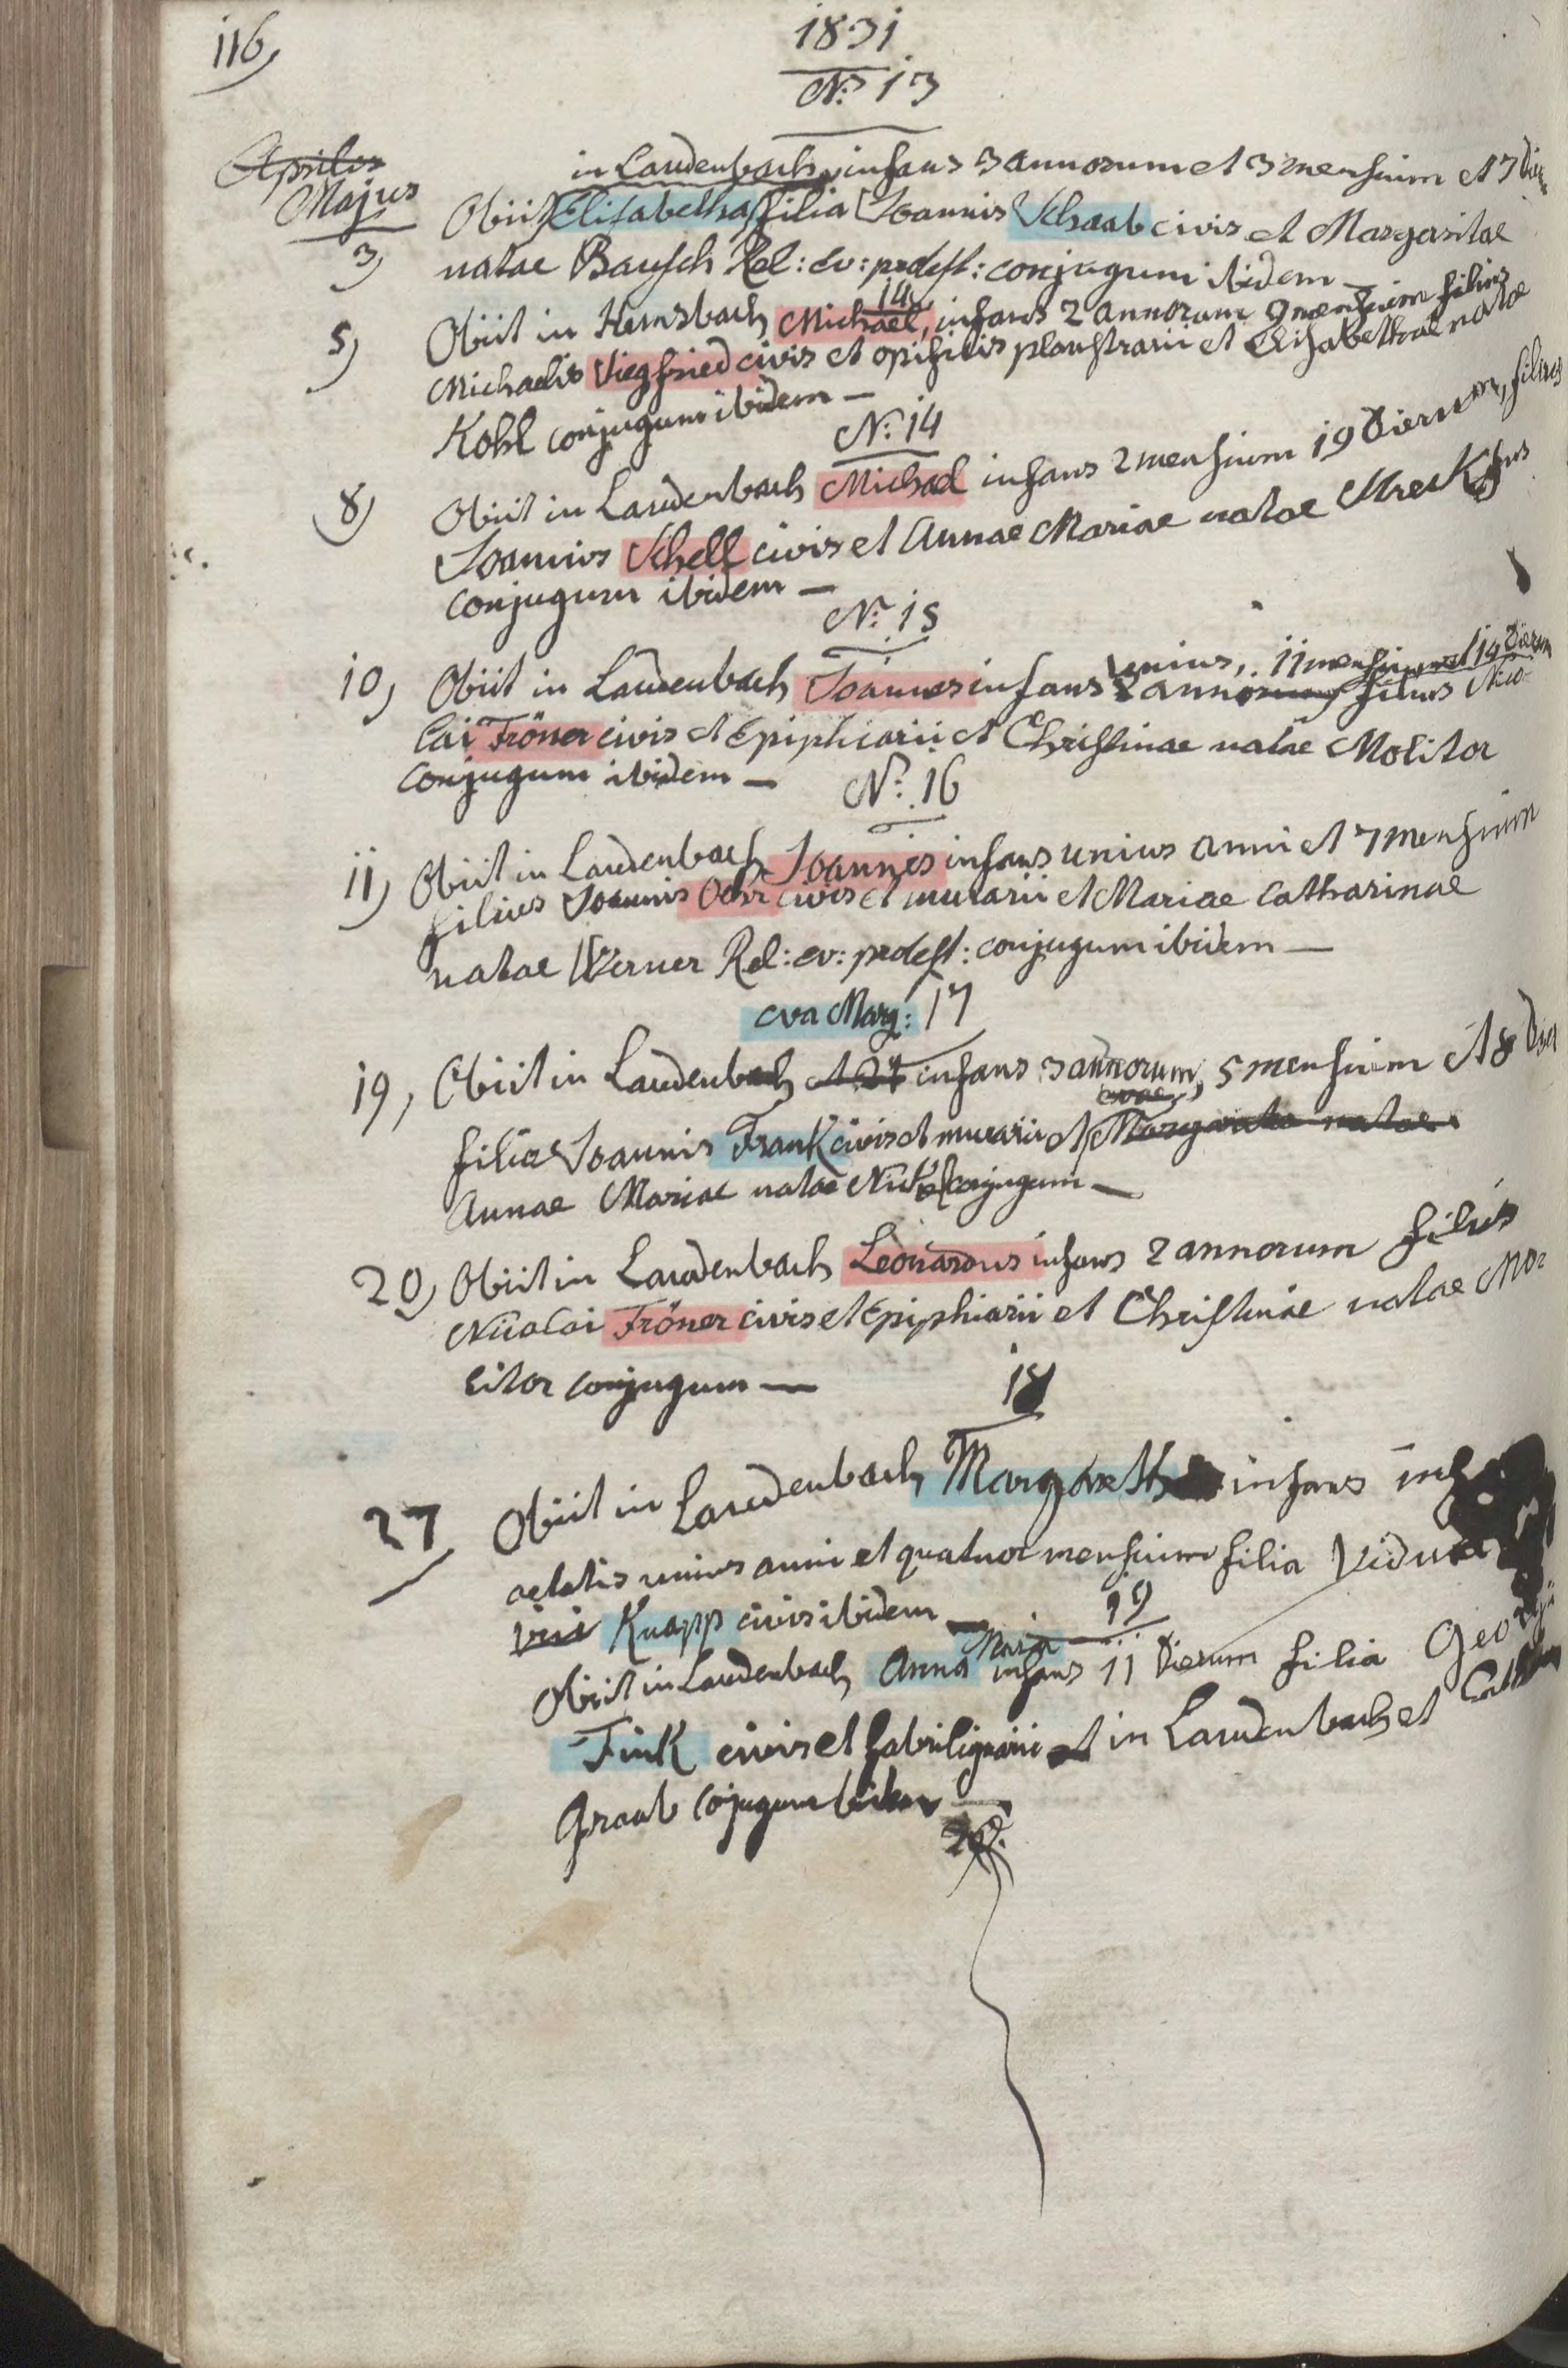 116,
1831
N: 13
Aprilis
Majus
3)
in Laudenbach, infans 3 annorum et 3 mensium et 7
Obiit Elisabetha filia Joannis Schaab civis et Margaritae
natae Bausch Rel: ev: prodest: conjugum ibidem —
14
5)
Obiit in Hemsbach Michael, infans 2 annorum 9 mensium filius
Michaelis Siegfried civis et opificis plaustrarii et Elisabethae natae
Kohl conjugum ibidem —
N: 14
8)
Obiit in Laudenbach Michael infans 2 mensium 19 Dierum, filius
Joannis Schell civis et Annae Mariae natae
conjugum ibidem —
N: 15
unius, 11 mensium et 14 Dierum
10,
Obiit in Laudenbach Joannes infans 2 annorum filius Nico-
lai Fröner civis et Epiphiarii et Christinae natae Molitor
conjugum ibidem —
N: 16
11)
Obiit in Laudenbach Joannes infans unius anni et 7 mensium
filius Joannis civis et murarii et Mariae Catharinae
natae Werner Rel: ev: prodest: conjugum ibidem —
eva Marg: 17
19,
Obiit in Laudenbach infans 3 annorum, 5 mensium et 8
filia Joannis Frank civis et murarii et Margarita natae
Annae Mariae natae conjugum —
20,
Obiit in Laudenbach Leonardus infans 2 annorum filius
Nicolai Fröner civis et Epiphiarii et Christinae natae Mo-
litor conjugum —
18
27
Obiit in Laudenbach Margareth infans
aetatis unius anni et quatuor mensium filia
Knapp civis ibidem —
19
Maria
Obiit in Laudenbach Anna infans 11 Dierum filia Georgii
Fink civis et fabrilignarii et in Laudenbach et
Graab cojugum